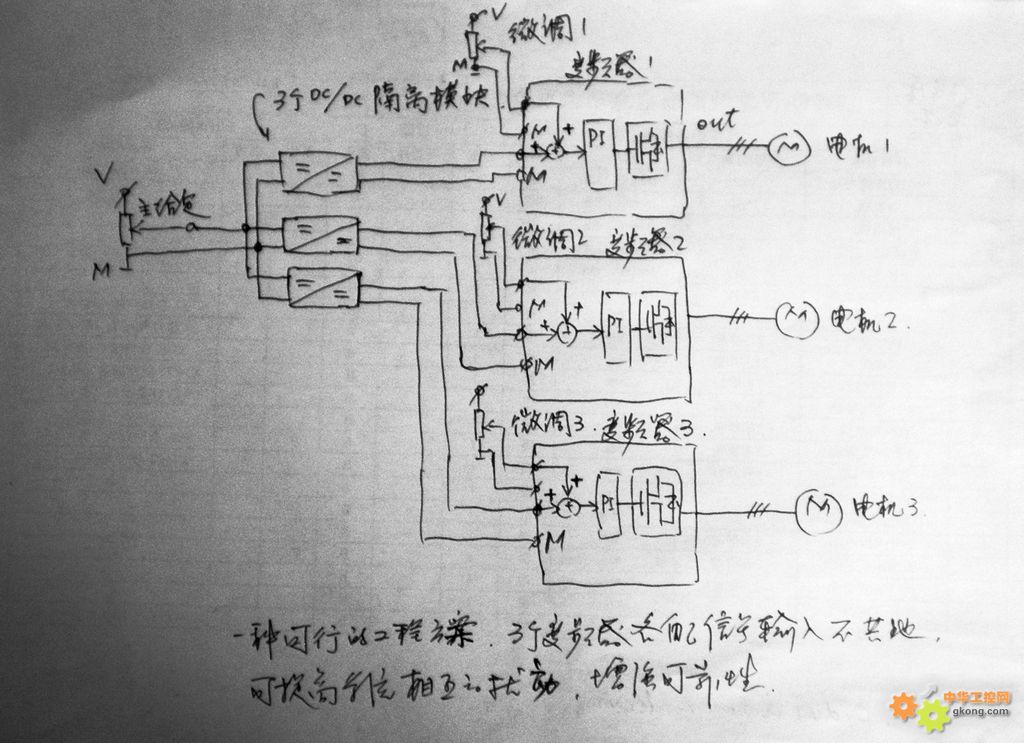 V
微调1
M
变频器1
3个DC/DC隔离模块
M
+
+
PI
out
M
电机1
M
V
主给定
a
M
V
微调2 变频器2
M
+
+
PI
M
电机2.
M
微调3. 变频器3.
+
+
PI
M
电机3.
M
一种可行的工程方案. 3个变频器各自信号输入不共地,
可提高系统相互的扰动, 增强可靠性.
中华工控网
gkong.com